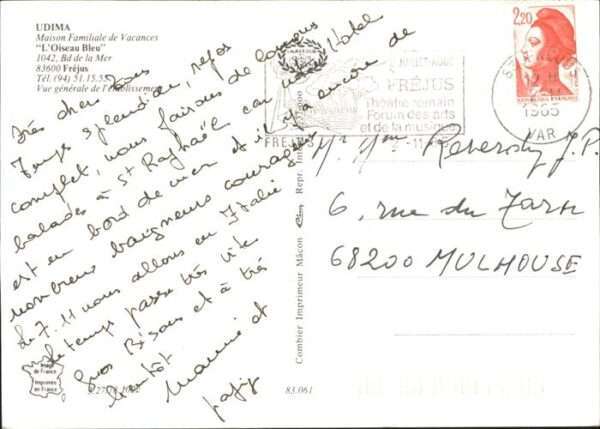 UDIMA
Maison Familiale de Vacances
"L'Oiseau Bleu"
1042, Bd de la Mer
83600 Fréjus
Tél. (94) 51.15.55
Vue générale de l'établissement
Très chers tous
Temps splendide, repos
complet, nous faisons de longues
balades à St Raphaël car notre hôtel
est en bord de mer et il y a encore de
nombreux baigneurs courageux
Le 7.11 nous allons en Italie
le temps passe très vite
Gros Bisous et à très
bientôt
Mamie et
papy
Image de France
Imprimée en France
83.061
Combier Imprimeur Mâcon
FRÉJUS
théâtre romain
Forum des arts
et de la musique
FRÉJUS
2-11
1985
VAR
2,20
Mr Mme Reversdy J.P.
6, rue du Tarn
68200 MULHOUSE